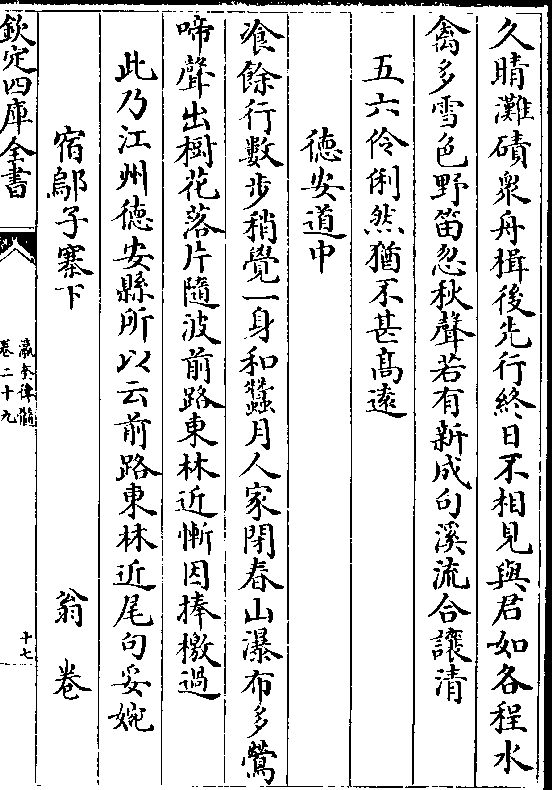 久晴灘磧衆舟楫後先行終日不相見與君如各程水
禽多雪色野笛忽秋聲若有新成句溪流合讓清
五六伶俐然猶不甚髙遠
徳安道中
飡餘行數步稍覺一身和蠶月人家閉春山瀑布多鶯
啼聲出樹花落片隨波前路東林近慚因捧檄過
此乃江州徳安縣所以云前路東林近尾句妥婉
宿鄔子寨下　翁卷
欽定四庫全書
瀛奎律髓
卷二十九
十七